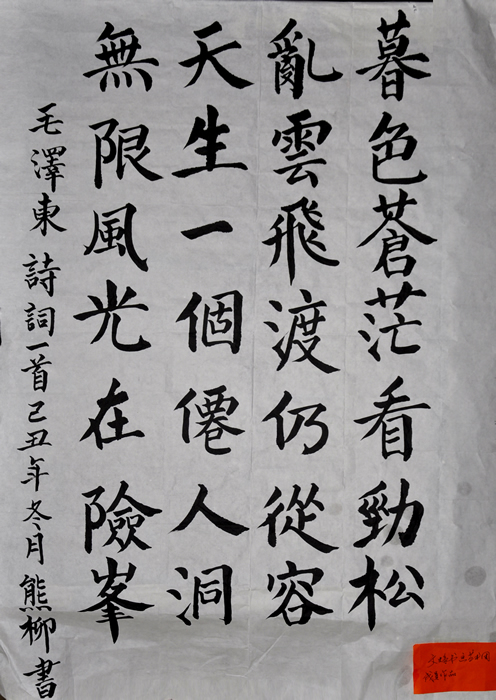 暮色蒼茫看勁松
亂雲飛渡仍從容
天生一個僊人洞
無限風光在險峯
毛澤東詩詞一首己丑年冬月熊柳書